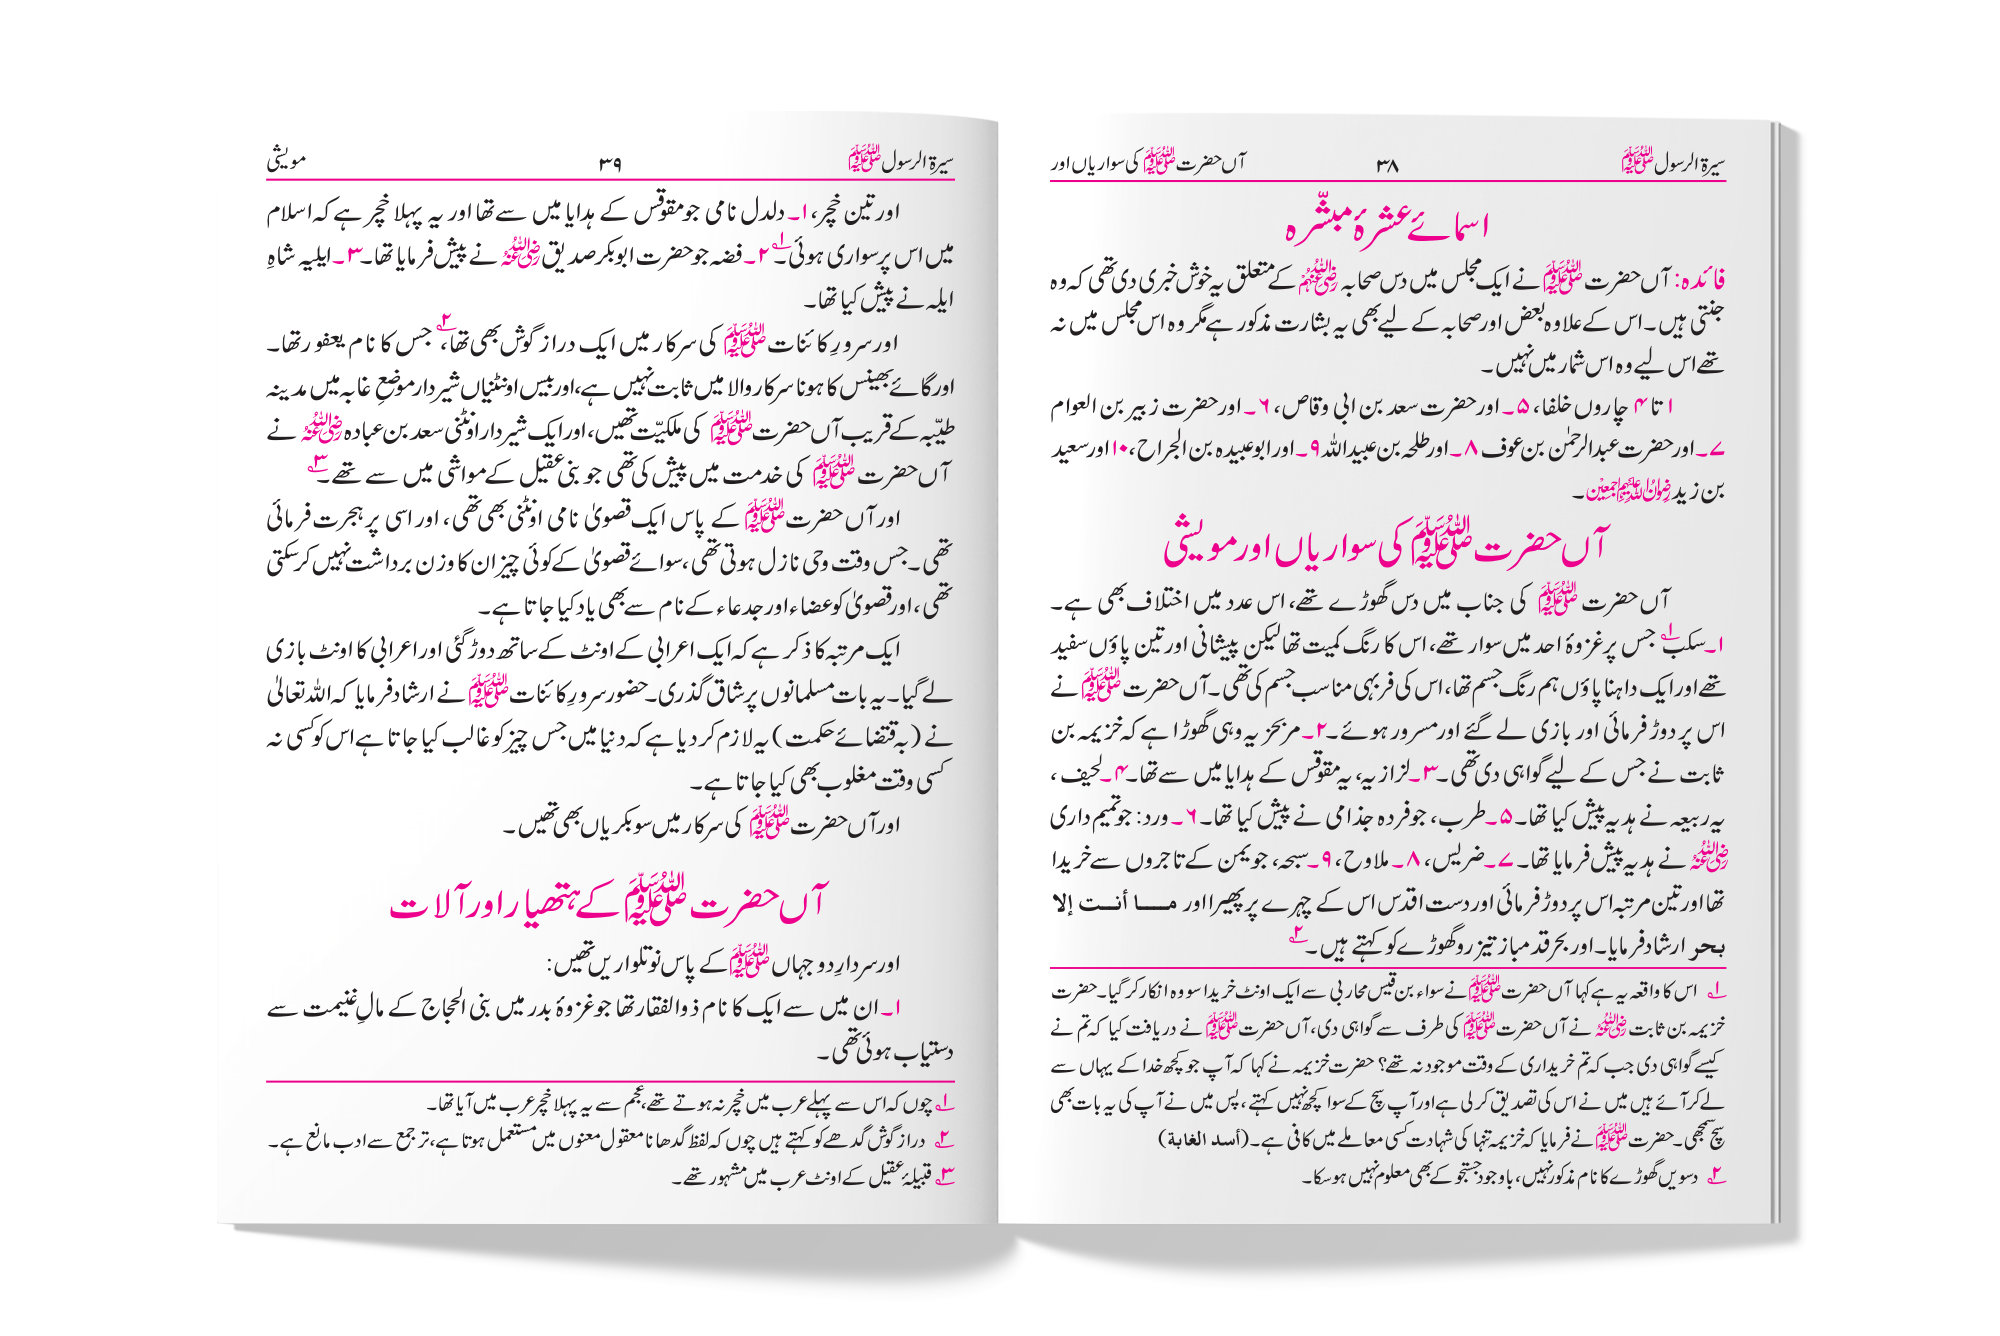 سیرۃ الرسول ﷺ ۳۸ آں حضرت ﷺ کی سواریاں اور
اسمائے عشرۂ مبشّرہ
فائدہ: آں حضرت ﷺ نے ایک مجلس میں دس صحابہ رضی اللہ عنہم کے متعلق یہ خوش خبری دی تھی کہ وہ
جنتی ہیں۔ اس کے علاوہ بعض اور صحابہ کے لیے بھی یہ بشارت مذکور ہے مگر وہ اس مجلس میں نہ
تھے اس لیے وہ اس شمار میں نہیں۔
۱ تا ۴ چاروں خلفا، ۵۔ اور حضرت سعد بن ابی وقاص، ۶۔ اور حضرت زبیر بن العوام
۷۔ اور حضرت عبدالرحمٰن بن عوف ۸۔ اور طلحہ بن عبیداللہ ۹۔ اور ابوعبیدہ بن الجراح، ۱۰ اور سعید
بن زید رضوان اللہ علیہم اجمعین۔
آں حضرت ﷺ کی سواریاں اور مویشی
آں حضرت ﷺ کی جناب میں دس گھوڑے تھے، اس عدد میں اختلاف بھی ہے۔
۱۔ سکب۱؎ جس پر غزوۂ احد میں سوار تھے، اس کا رنگ کمیت تھا لیکن پیشانی اور تین پاؤں سفید
تھے اور ایک داہنا پاؤں ہم رنگ جسم تھا، اس کی فربہی مناسب جسم کی تھی۔ آں حضرت ﷺ نے
اس پر دوڑ فرمائی اور بازی لے گئے اور مسرور ہوئے۔ ۲۔ مرتجز یہ وہی گھوڑا ہے کہ خزیمہ بن
ثابت نے جس کے لیے گواہی دی تھی۔ ۳۔ لزاز یہ، یہ مقوقس کے ہدایا میں سے تھا۔ ۴۔ لحیف،
یہ ربیعہ نے ہدیہ پیش کیا تھا۔ ۵۔ طرب، جو فردہ جذامی نے پیش کیا تھا۔ ۶۔ ورد: جو تمیم داری
رضی اللہ عنہ نے ہدیہ پیش فرمایا تھا۔ ۷۔ ضریس، ۸۔ ملاوح، ۹۔ سبحہ، جو یمن کے تاجروں سے خریدا
تھا اور تین مرتبہ اس پر دوڑ فرمائی اور دست اقدس اس کے چہرے پر پھیرا اور ما أنت إلا
بحر ارشاد فرمایا۔ اور بحر قدمباز تیز رو گھوڑے کو کہتے ہیں۔۲؎
۱؎ اس کا واقعہ یہ ہے کہا آں حضرت ﷺ نے سواء بن قیس محاربی سے ایک اونٹ خریدا سو وہ انکار کر گیا۔ حضرت
خزیمہ بن ثابت رضی اللہ عنہ نے آں حضرت ﷺ کی طرف سے گواہی دی، آں حضرت ﷺ نے دریافت کیا کہ تم نے
کیسے گواہی دی جب کہ تم خریداری کے وقت موجود نہ تھے؟ حضرت خزیمہ نے کہا کہ آپ جو کچھ خدا کے یہاں سے
لے کر آئے ہیں میں نے اس کی تصدیق کر لی ہے اور آپ سچ کے سوا کچھ نہیں کہتے، پس میں نے آپ کی یہ بات بھی
سچ سمجھی۔ حضرت ﷺ نے فرمایا کہ خزیمہ تنہا کی شہادت کسی معاملے میں کافی ہے۔ (أسد الغابة)
۲؎ دسویں گھوڑے کا نام مذکور نہیں، باوجود جستجو کے بھی معلوم نہیں ہوسکا۔
سیرۃ الرسول ﷺ ۳۹ مویشی
اور تین خچر، ۱۔ دلدل نامی جو مقوقس کے ہدایا میں سے تھا اور یہ پہلا خچر ہے کہ اسلام
میں اس پر سواری ہوئی۔۱؎ ۲۔ فضہ جو حضرت ابوبکر صدیق رضی اللہ عنہ نے پیش فرمایا تھا۔ ۳۔ ایلیہ شاہِ
ایلہ نے پیش کیا تھا۔
اور سرورِ کائنات ﷺ کی سرکار میں ایک دراز گوش بھی تھا،۲؎ جس کا نام یعفور تھا۔
اور گائے بھینس کا ہونا سرکار والا میں ثابت نہیں ہے، اور بیس اونٹنیاں شیردار موضعِ غابہ میں مدینہ
طیّبہ کے قریب آں حضرت ﷺ کی ملکیّت تھیں، اور ایک شیردار اونٹنی سعد بن عبادہ رضی اللہ عنہ نے
آں حضرت ﷺ کی خدمت میں پیش کی تھی جو بنی عقیل کے مواشی میں سے تھے۔۳؎
اور آں حضرت ﷺ کے پاس ایک قصویٰ نامی اونٹنی بھی تھی، اور اسی پر ہجرت فرمائی
تھی۔ جس وقت وحی نازل ہوتی تھی، سوائے قصویٰ کے کوئی چیز ان کا وزن برداشت نہیں کرسکتی
تھی، اور قصویٰ کو عضاء اور جدعاء کے نام سے بھی یاد کیا جاتا ہے۔
ایک مرتبہ کا ذکر ہے کہ ایک اعرابی کے اونٹ کے ساتھ دوڑ گئی اور اعرابی کا اونٹ بازی
لے گیا۔ یہ بات مسلمانوں پر شاق گذری۔ حضور سرورِ کائنات ﷺ نے ارشاد فرمایا کہ اللہ تعالیٰ
نے (بہ قتضائے حکمت) یہ لازم کر دیا ہے کہ دنیا میں جس چیز کو غالب کیا جاتا ہے اس کو کسی نہ
کسی وقت مغلوب بھی کیا جاتا ہے۔
اور آں حضرت ﷺ کی سرکار میں سو بکریاں بھی تھیں۔
آں حضرت ﷺ کے ہتھیار اور آلات
اور سردارِ دو جہاں ﷺ کے پاس نو تلواریں تھیں:
۱۔ ان میں سے ایک کا نام ذوالفقار تھا جو غزوۂ بدر میں بنی الحجاج کے مالِ غنیمت سے
دستیاب ہوئی تھی۔
۱؎ چوں کہ اس سے پہلے عرب میں خچر نہ ہوتے تھے، عجم سے یہ پہلا خچر عرب میں آیا تھا۔
۲؎ دراز گوش گدھے کو کہتے ہیں چوں کہ لفظ گدھا نامعقول معنوں میں مستعمل ہوتا ہے، ترجمع سے ادب مانع ہے۔
۳؎ قبیلۂ عقیل کے اونٹ عرب میں مشہور تھے۔